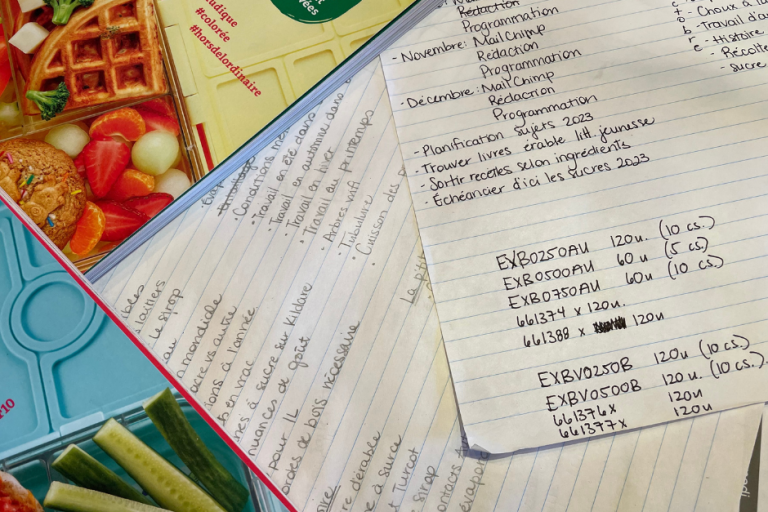 #colorée
#horsdelordinaire
Rédaction
Programmation
- Novembre: MailChimp
Rédaction
Programmation
- Décembre: MailChimp
Rédaction
Programmation
- Planification sujets 2023
- Trouver livres érable litt. jeunesse
- Sortir recettes selon ingrédients
- Échéancier d'ici les sucres 2023
EXBO250AU 120u. (10 cs.)
EXBO500AU 60u (5 cs)
EXBO750AU 60u (10 cs.)
661374 x 120u.
661388 x 120u
EXBV0250B 120u (10 cs)
EXBV0500B 120u. (10 cs.)
661376x 120u
661377x 120u
- Choux à la
- Travail da
- Histoire
- Récolte
- Sucre
• Conditions
• Travail en été dans
• Travail en automne dans
• Travail en hiver
• Travail au printemps
• Arbres
• Tubulure
• Cuisson des p
sirop
mondiale
vs autre
à l'année
en vrac
à sucre sur Kildare
nuances de goût
pour 1L
de bois nécessaire
d'érable
à sucre
Turcot
sirop
r10